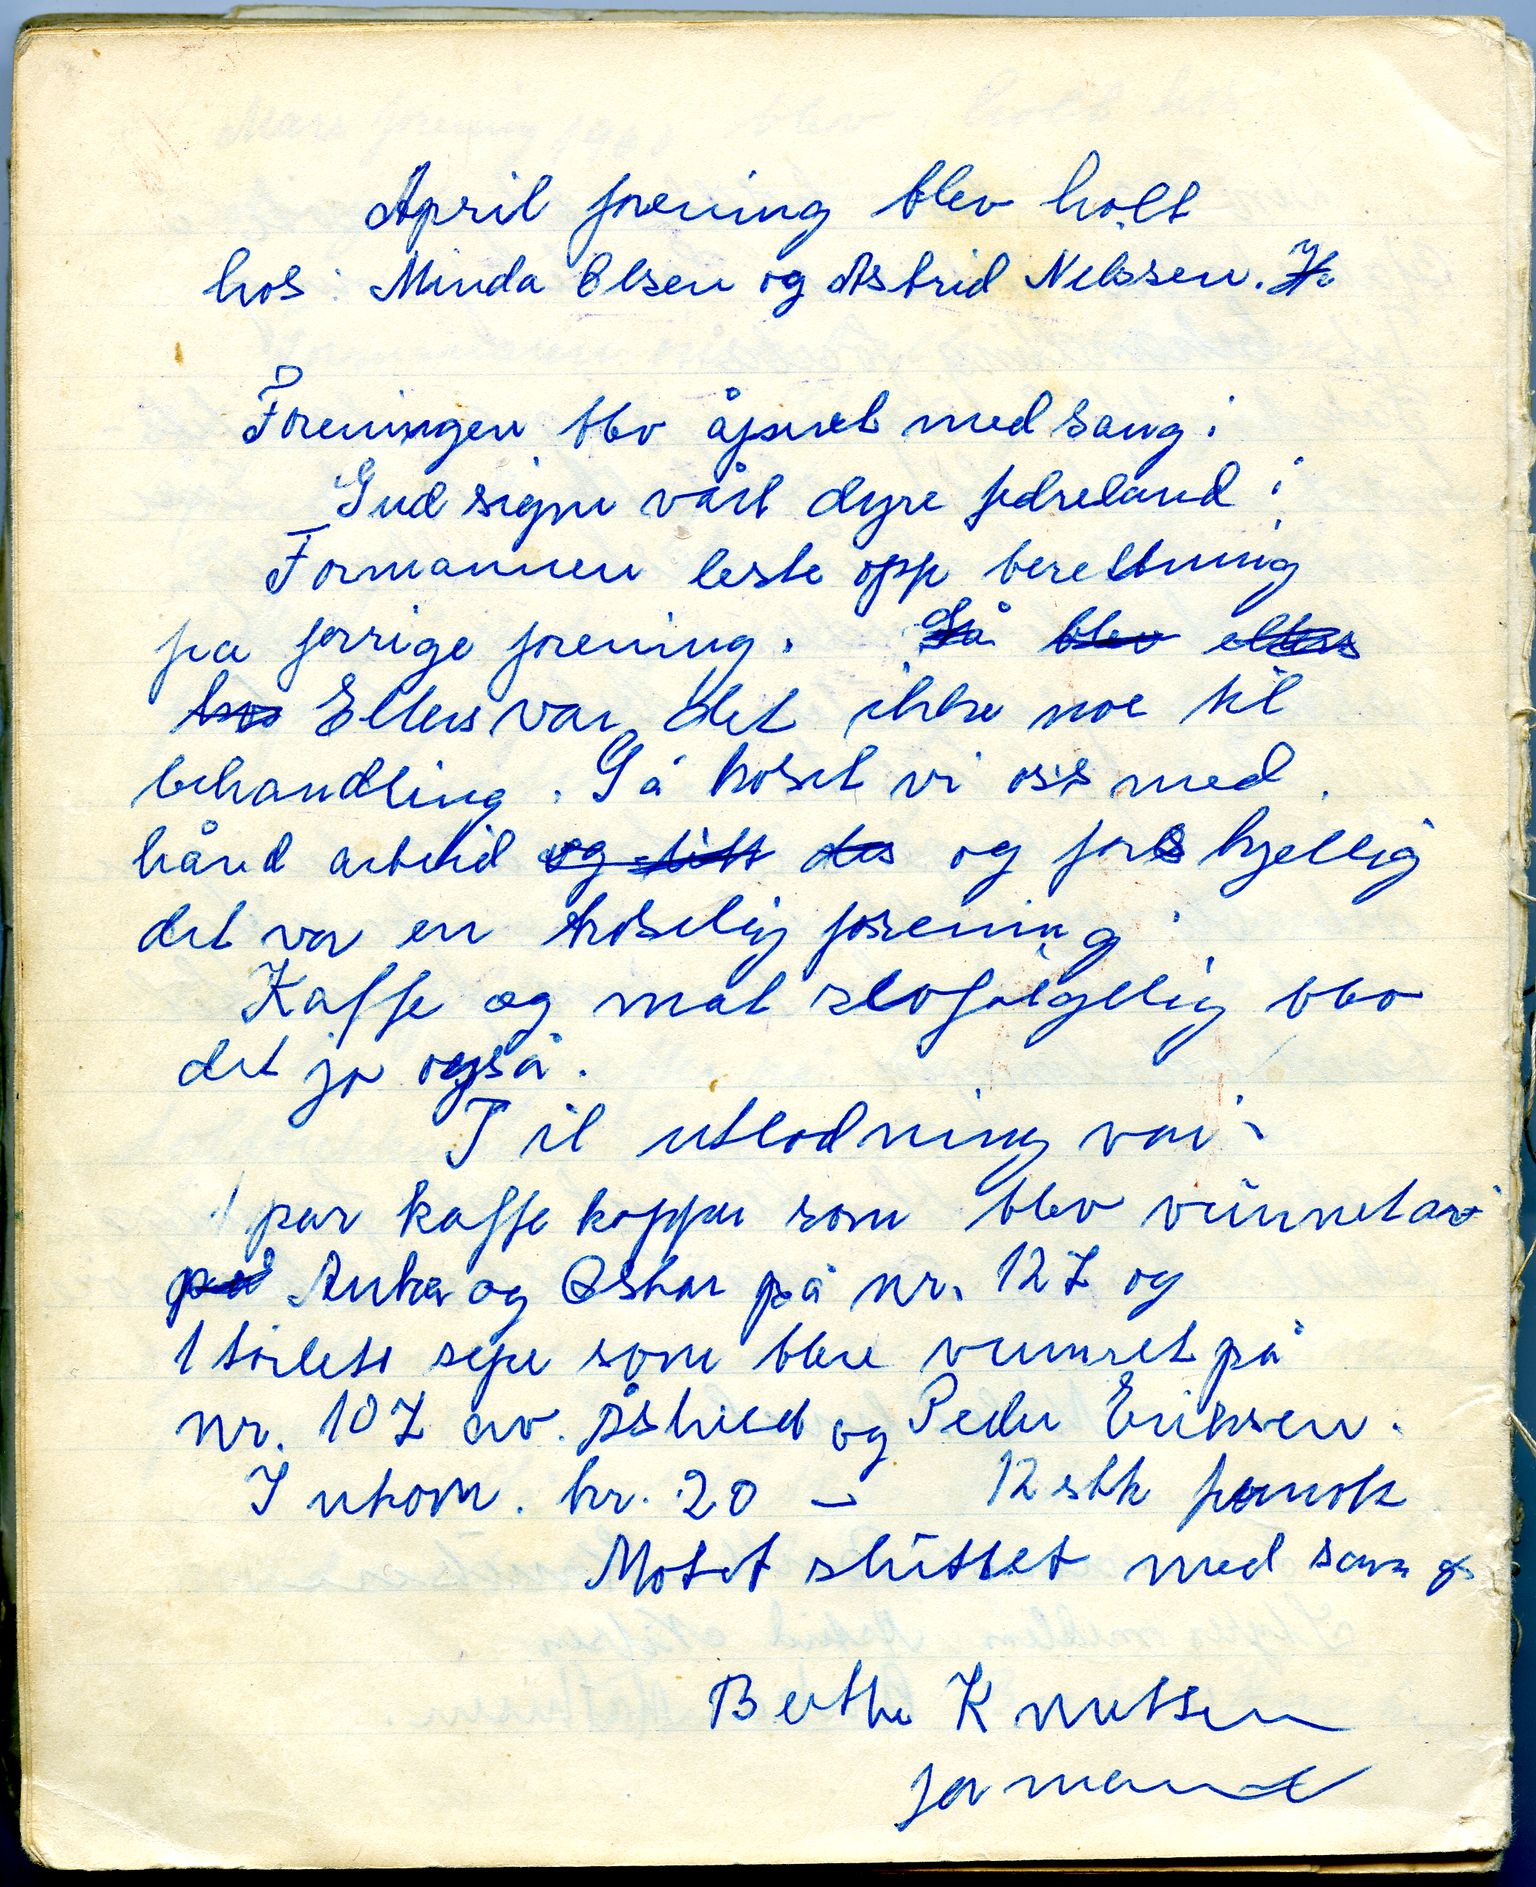 April forening blev holt
hos: Minda Olsen og Astrid Nilssen.
Foreningen blev åpnet med sang:
Gud signe vårt dyre fedreland:
Formannen leste opp berettning
på forrige forening. Så blev ellers
hos Ellers var det ikke noe til
behandling. Så koset vi oss med
hånd arbeid og litt des og forskjellig
det var en koselig forening.
Kaffe og mat selvfølgelig blev
det jo også.
Til utlodning var:
1 par kaffe kopper som blev vunnet av
på Anka og Oskar på nr. 127 og
1 toilett sepe som blev vunnet på
nr. 107 av Åshild og Peder Eriksen.
Inkom. kr. 20 – 12 stk
Motet sluttet med sang
Berthe Knutsen
formand